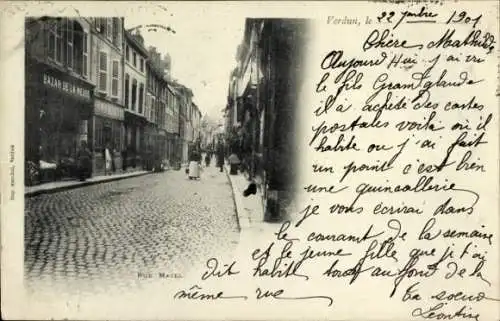 Verdun, le 22 1901
Chère Mathilde
Aujourd'Hui j'ai vu
le fils Granglaude
il a acheté des cartes
postales voilà où il
habite ou j'ai fait
un point c'est bien
une quincaillerie
je vous écrirai dans
le courant de la semaine
et le jeune fille que je t'ai
dit habite tout au fond de la
même rue
Ta sœur
Léontine
BAZAR DE LA MEUSE
RUE MAZEL